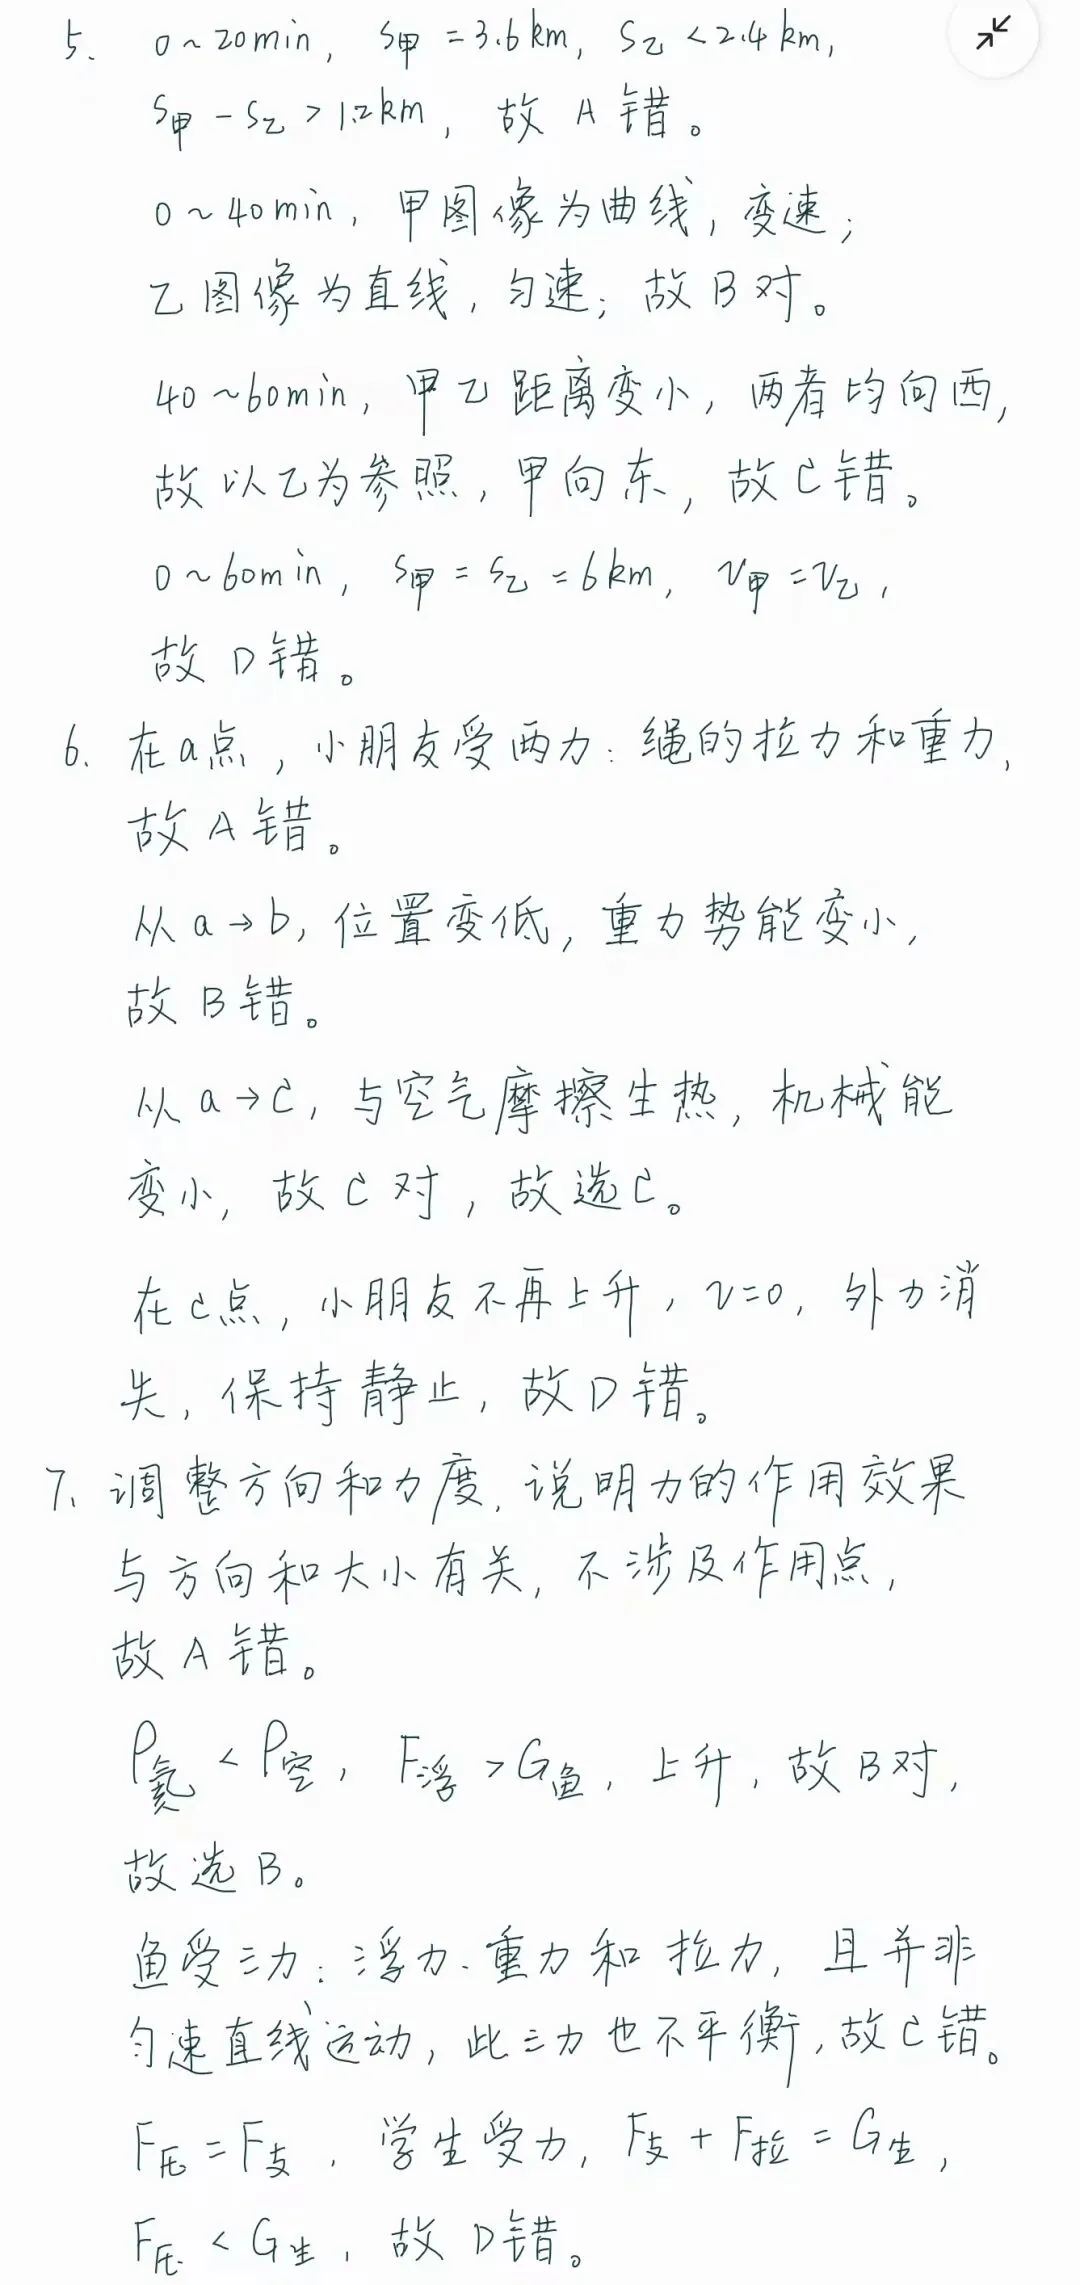 5. 0~20min, S甲=3.6km, S乙<2.4km,
S甲-S乙>1.2km, 故A错。
0~40min, 甲图像为曲线, 变速;
乙图像为直线, 匀速; 故B对。
40~60min, 甲乙距离变小, 两者均向西,
故以乙为参照, 甲向东, 故C错。
0~60min, S甲=S乙=6km, v甲=v乙,
故D错。
6. 在a点, 小朋友受两力: 绳的拉力和重力,
故A错。
从a→b, 位置变低, 重力势能变小,
故B错。
从a→c, 与空气摩擦生热, 机械能
变小, 故C对, 故选C。
在c点, 小朋友不再上升, v=0, 外力消
失, 保持静止, 故D错。
7. 调整方向和力度, 说明力的作用效果
与方向和大小有关, 不涉及作用点,
故A错。
ρ氦<ρ空, F浮>G鱼, 上升, 故B对,
故选B。
鱼受三力: 浮力、重力和拉力, 且并非
匀速直线运动, 此三力也不平衡, 故C错。
F压=F支, 学生受力, F支+F拉=G生,
F压<G生, 故D错。